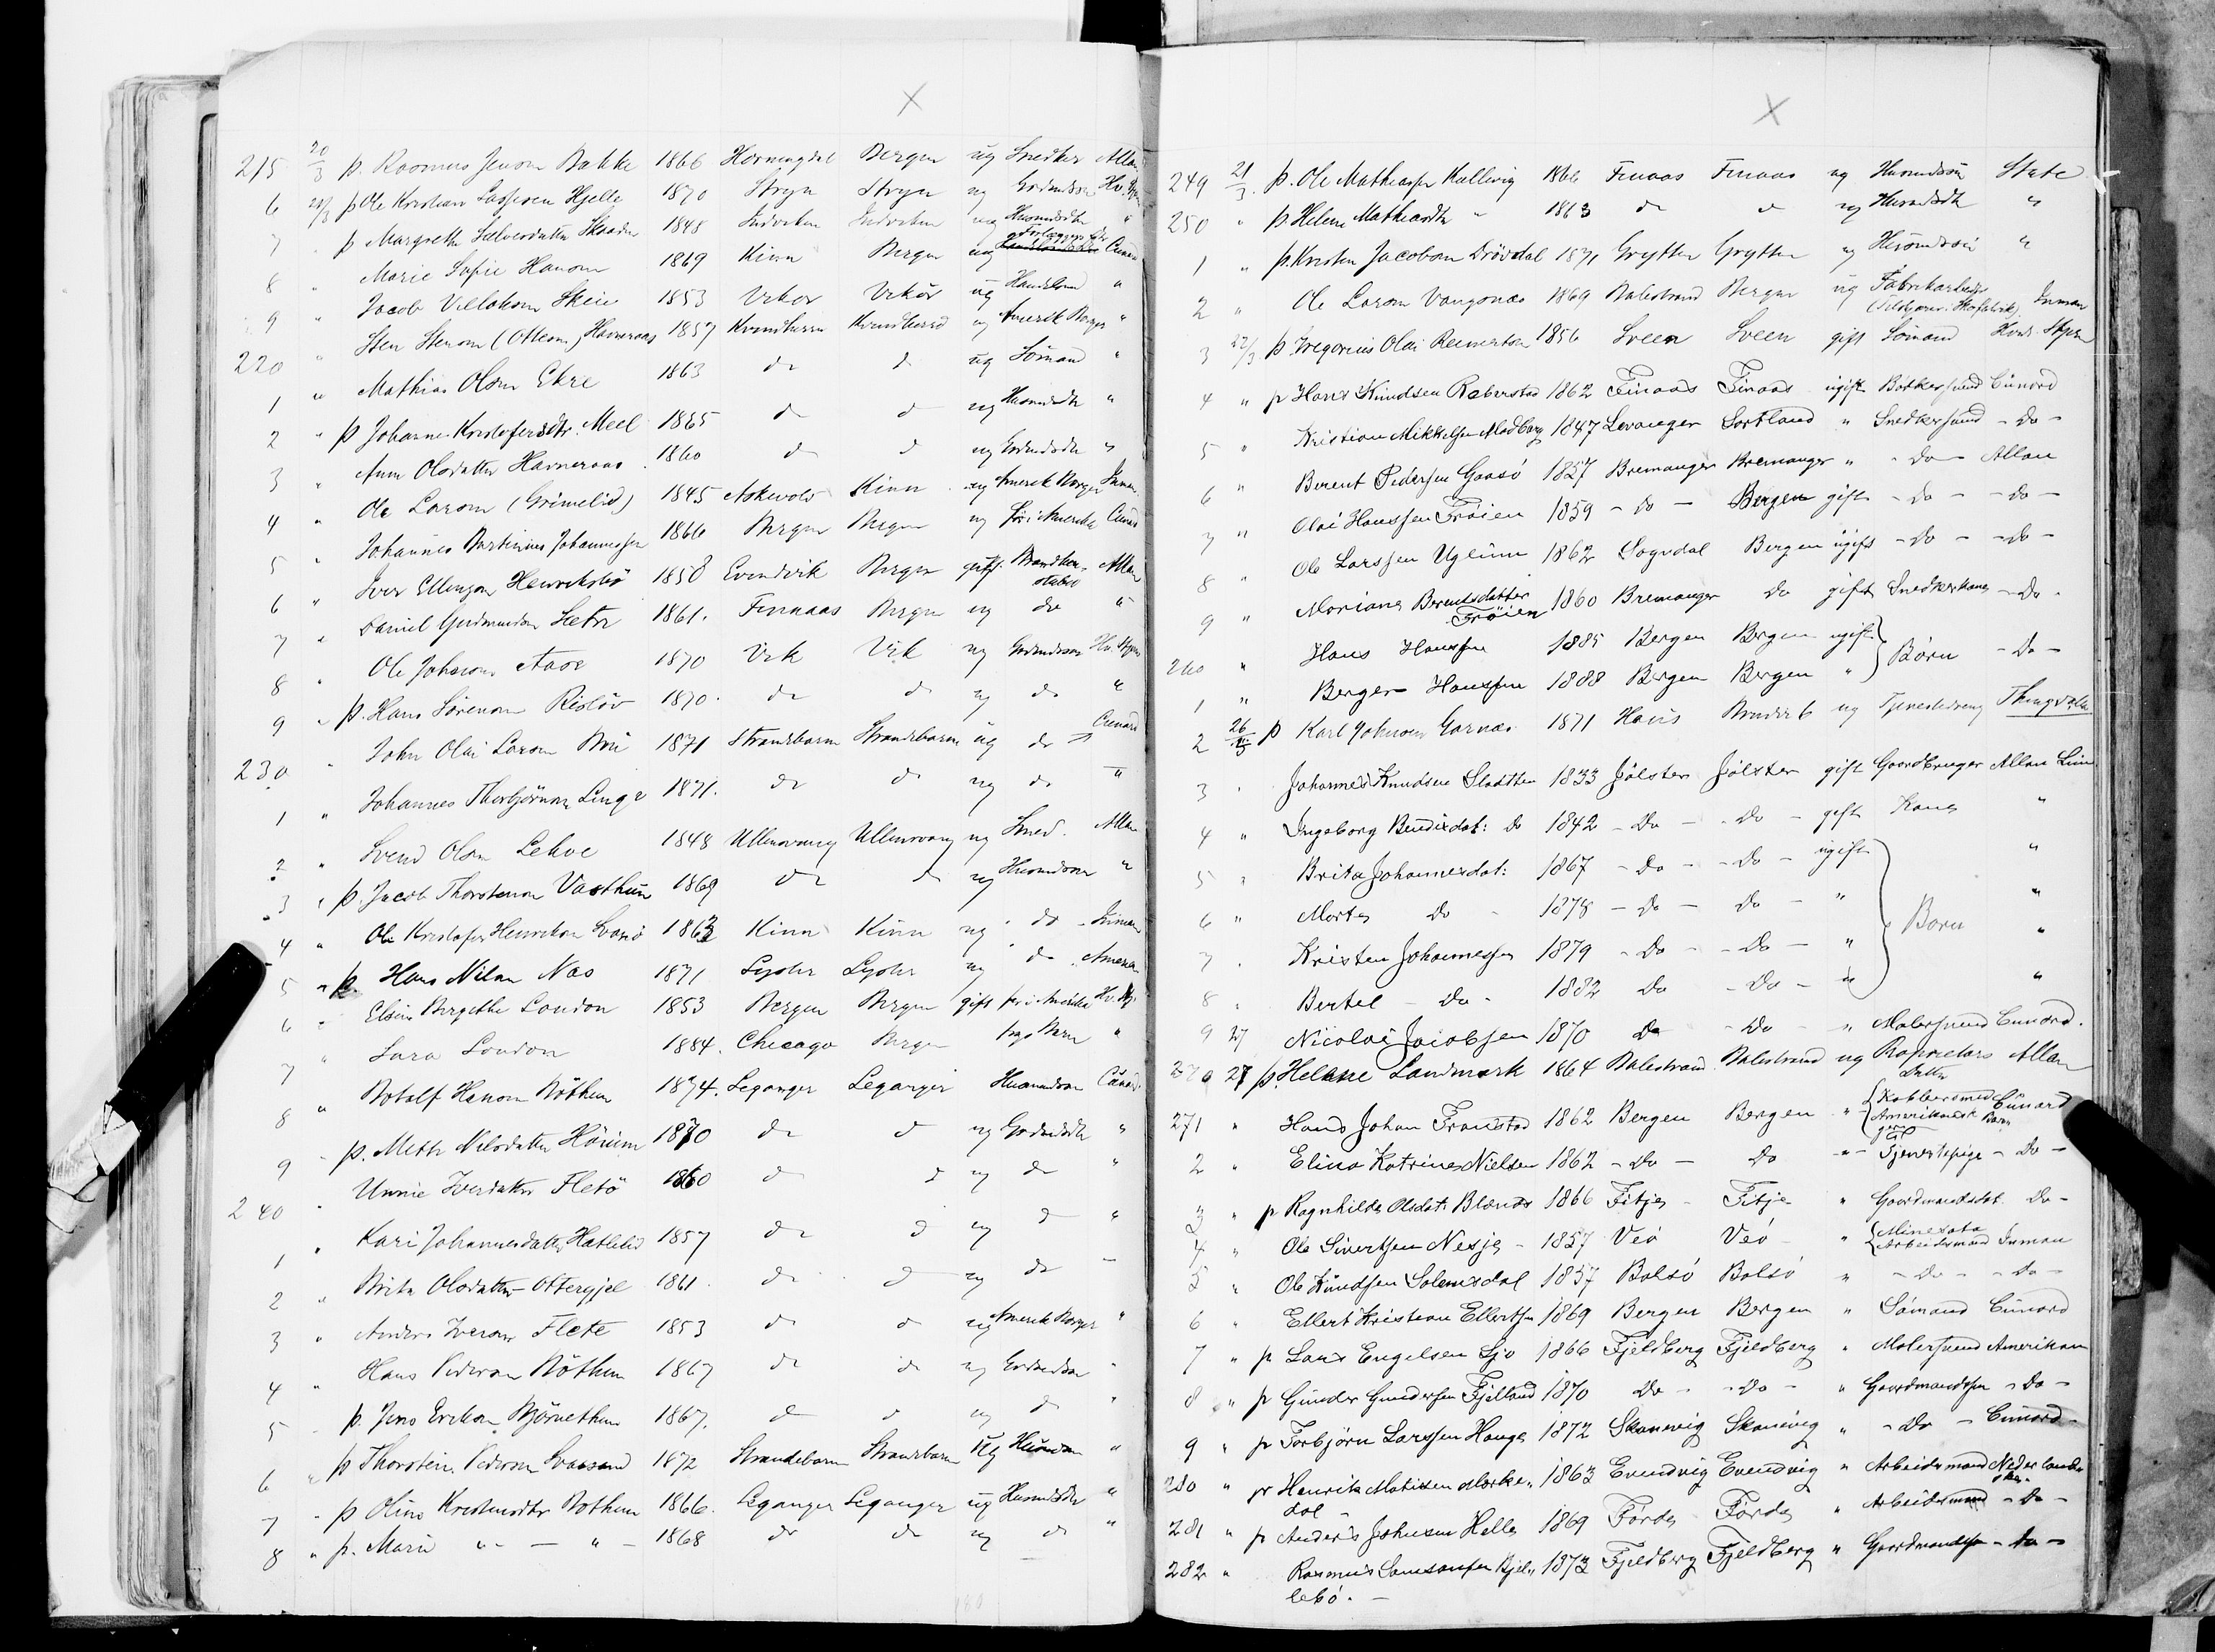 215 20/3 p. Rasmus Jenson Bakke 1866 Horningdal Bergen ug Snedker Allan
6 21/3 p Ole Kristian Lassesen Hjelle 1870 Stryn Stryn ug Grdmdssøn Hv. Stjern
7 p Margrethe Sælversdatter Skaaden 1848 Indviken Indviken ug Husmdsdtr "
8 " Marie Sofie Hanson 1869 Kinn Bergen ug Cunard
9 " Jacob Villakson Skeie 1853 Vikør Vikør ug Handelsmd "
220 " Sten Stenson (Ottesen) Havneraas 1857 Kvindherred Kvindherred ug Amerik Borger "
1 " Mathias Olsen Ekre 1863 do do ug Sømand "
2 " p Johanne Kristofersdtr. Meel 1865 do do ug Husmdsdtr "
3 " Anna Olsdatter Havneraas 1860 do do ug Grdmdsdtr "
4 " Ole Larson (Grimelid) 1845 Askevold Kinn ug Amerik Borger Inman
5 " Johannes Bertinius Johannessen 1866 Bergen Bergen ug før i Amerika Cunard
6 " Iver Ellingsen Henriksbø 1858 Evindvik Bergen gift Brandkonstabel Allan
7 " Daniel Gudmundsen Sletn 1861. Finnaas Bergen ug do "
8 " Ole Johnson Aase 1870 Vik Vik ug Grdmdssøn Hv. Stjern
9 " p. Hans Sörenson Risløv 1870. do do ug do "
230 " John Olai Larson Bru 1871 Strandebarm Strandebarm ug do Cunard
1 " Johannes Thorbjörnson Linge 1871. do do ug do "
2 " Svend Olsen Lekve 1848 Ullensvang Ullensvang ug Smed. Allan
3 " p. Jacob Thorstenson Vasthun 1869 do do ug Husmdssøn "
4 " Ole Kristofer Henrikson Svanø 1862 Kinn Kinn ug do Inman
5 " p. Hans Nilsen Nes 1871 Lyster Lyster ug do Amerikan
6 " Elsine Bergethe London 1853 Bergen Bergen gift før i Amerika Hv. Stj.
7 " Sara London 1884. Chicago Bergen Barn "
8 " Botolf Hanson Nøthun 1874. Leganger Leganger Husmandssøn Cunard
9 " p. Mette Nilsdatter Hönum 1870 do do ug Grdmdsdtr "
240 " Unnie Iversdatter Fletö 1860 do do ug do "
1 " Kari Johannesdatter Hatlelid 1857 do do ug do "
2 " Brita Olsdatter Ottergjel 1861. do do ug do "
3 " Anders Iverson Flete 1853 do do ug Amerik Borger "
4 " Hans Pederson Nöthun 1867 do do ug Grdmdssøn "
5 " p. Jens Erikson Björnethun 1867. do do ug do "
6 " p Thorstein Pederson Svaasand 1872 Strandebarm Strandebarm ug Husmdssøn "
7 " p Oline Kristensdtr Nothun 1866. Leganger Leganger ug Husmdsdtr "
8 " p. Marie " — " — 1868 do do ug do "
249 21/3. p. Ole Mathiassen Kallevig 1866 Finaas Finaas ug Husmdssön State
250 " p Helene Mathiasdtr " 1863 do do ug Husmdsdtr "
1 " p. Kristen Jacobsen Drövdal 1871 Grytten Grytten ug Husmdssön "
2 " Ole Larson Vangsnæs 1869 Balestrand Bergen ug Fabrikarbeider Inman
3 22/3 p. Gregorius Olai Reinertsen 1856 Sveen Sveen gift Sömand Hvid. Stjern
4 " p Hans Knudsen Røberstad 1862 Finaas Finaas ugift Bødkersvend Cunard
5 " Kristian Mikkelsen Aladberg 1847 Levanger Sortland " Snedkersvend - Do -
6 " Berent Pedersen Gaasö 1857 Bremanger Bremanger " - Do - Allan
7 " Olai Hanssen Fröien 1859 - Do - Bergen gift - Do - - Do -
8 " Ole Larssen Uglum 1862 Sogndal Bergen ugift - Do - - Do -
9 " Mariane Berentsdatter Fröien 1860 Bremanger Do gift Snedkerkone - Do -
260 " Hans Hanssen 1885 Bergen Bergen ugift } Börn - Do -
1 " Berger Hanssen 1888 Bergen Bergen "
2 26/3 p Karl Johnson Garnæs 1871 Haus Bruvik ug Tjenestedreng Thingvalla
3 " Johannes Knudsen Sladtten 1833 Jölster Jölster gift Gaardbruger Allan Linie
4 " Ingeborg Bendixdat: Do 1842 - Do - - Do - gift Kone "
5 " Brita Johannesdat: 1867 - Do - - Do - ugift "
6 " Marte Do - 1878 - Do - Do - " "
7 " Kristen Johannessen 1879 - Do - - Do - " } Börn "
8 " Bertel - Do - 1882 Do - Do - " "
9 27 Nicolai Jacobsen 1870 Do - Do - " Malersvend Cunard.
270 27 p. Helene Landmark 1864 Balestrand Balestrand ug Proprietærs Datter Allan
271 " Hans Johan Franstad 1862 Bergen Bergen " { Kobbersmed Amerikansk Borger Cunard
2 " Elina Katrine Nielsen 1862 - Do - Do " - Tjenestepige - Do -
3 " p Ragnhilde Olsdat: Blænes 1866 Fitje - Fitje " Gaardmandsdat. Do -
4 " Ole Sivertsen Nesje - 1857 Veö Veö " { Minesota Arbeidsmand Inman
5 " Ole Knudsen Solemsdal 1857 Bolsö Bolsö " - Do - - Do -
6 " Ellert Kristian Ellertsen 1869 Bergen Bergen " Sömand Cunard
7 " p Lars Engelsen Sjo 1866 Fjeldberg Fjeldberg " Malersvend Amerikan
8 " p Gunder Gundersen Fjelland 1870 Do - - Do - " Gaardmandssøn - Do -
9 " p Torbjörn Larssen Hauge 1872 Skonevig Skonevig " - Do - Cunard
280 " p Henrik Matissen Mørkedal 1863 Evindvig Evindvig " Arbeidsmand Nederlandske
281 " p Anders Johnsen Helle 1869 Förde Förde " Arbeidsmand - Do -
282 " Rasmus Samsonsen Bjellebö. - 1873 Fjeldberg Fjeldberg " Gaardmandssøn - Do -